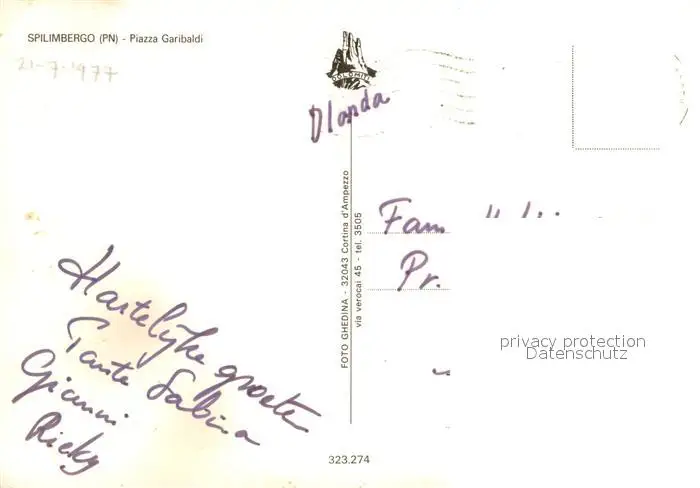 SPILIMBERGO (PN) - Piazza Garibaldi
21-7-1977
DOLOMITI
Olanda
Hartelijke groeten
Tante Sabina
Gianni
Ricky
FOTO GHEDINA - 32043 Cortina d'Ampezzo
via verocai 45 - tel. 3505
Fam
Pr.
privacy protection
Datenschutz
323.274